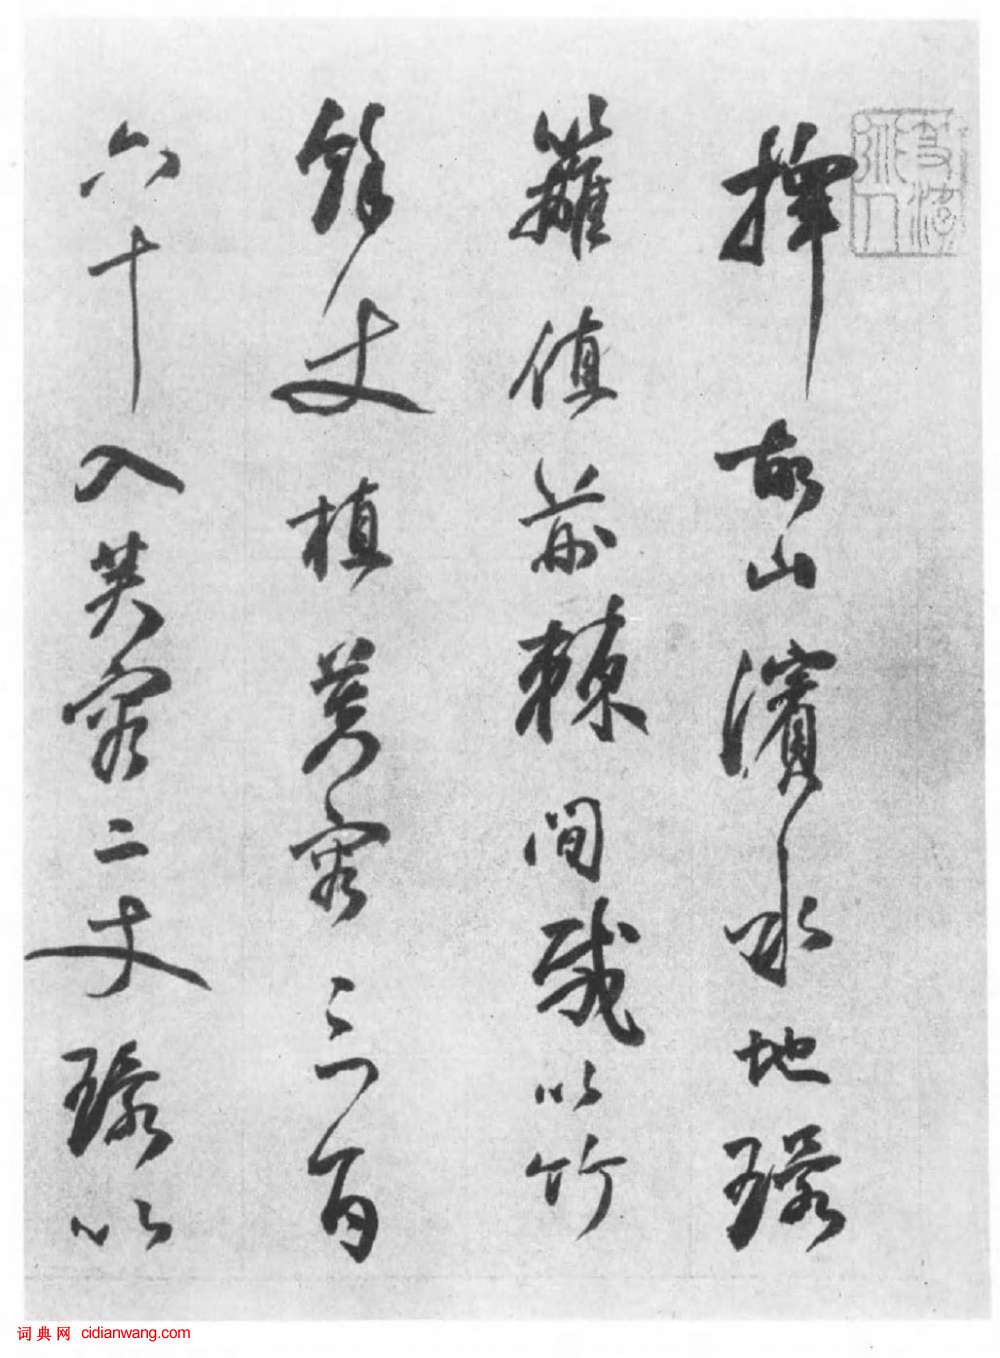 择故山濱水地環
籬植荊棘間栽以竹
餘丈植芙容三百
六十入芙容二丈環以
词典网 cidianwang.com